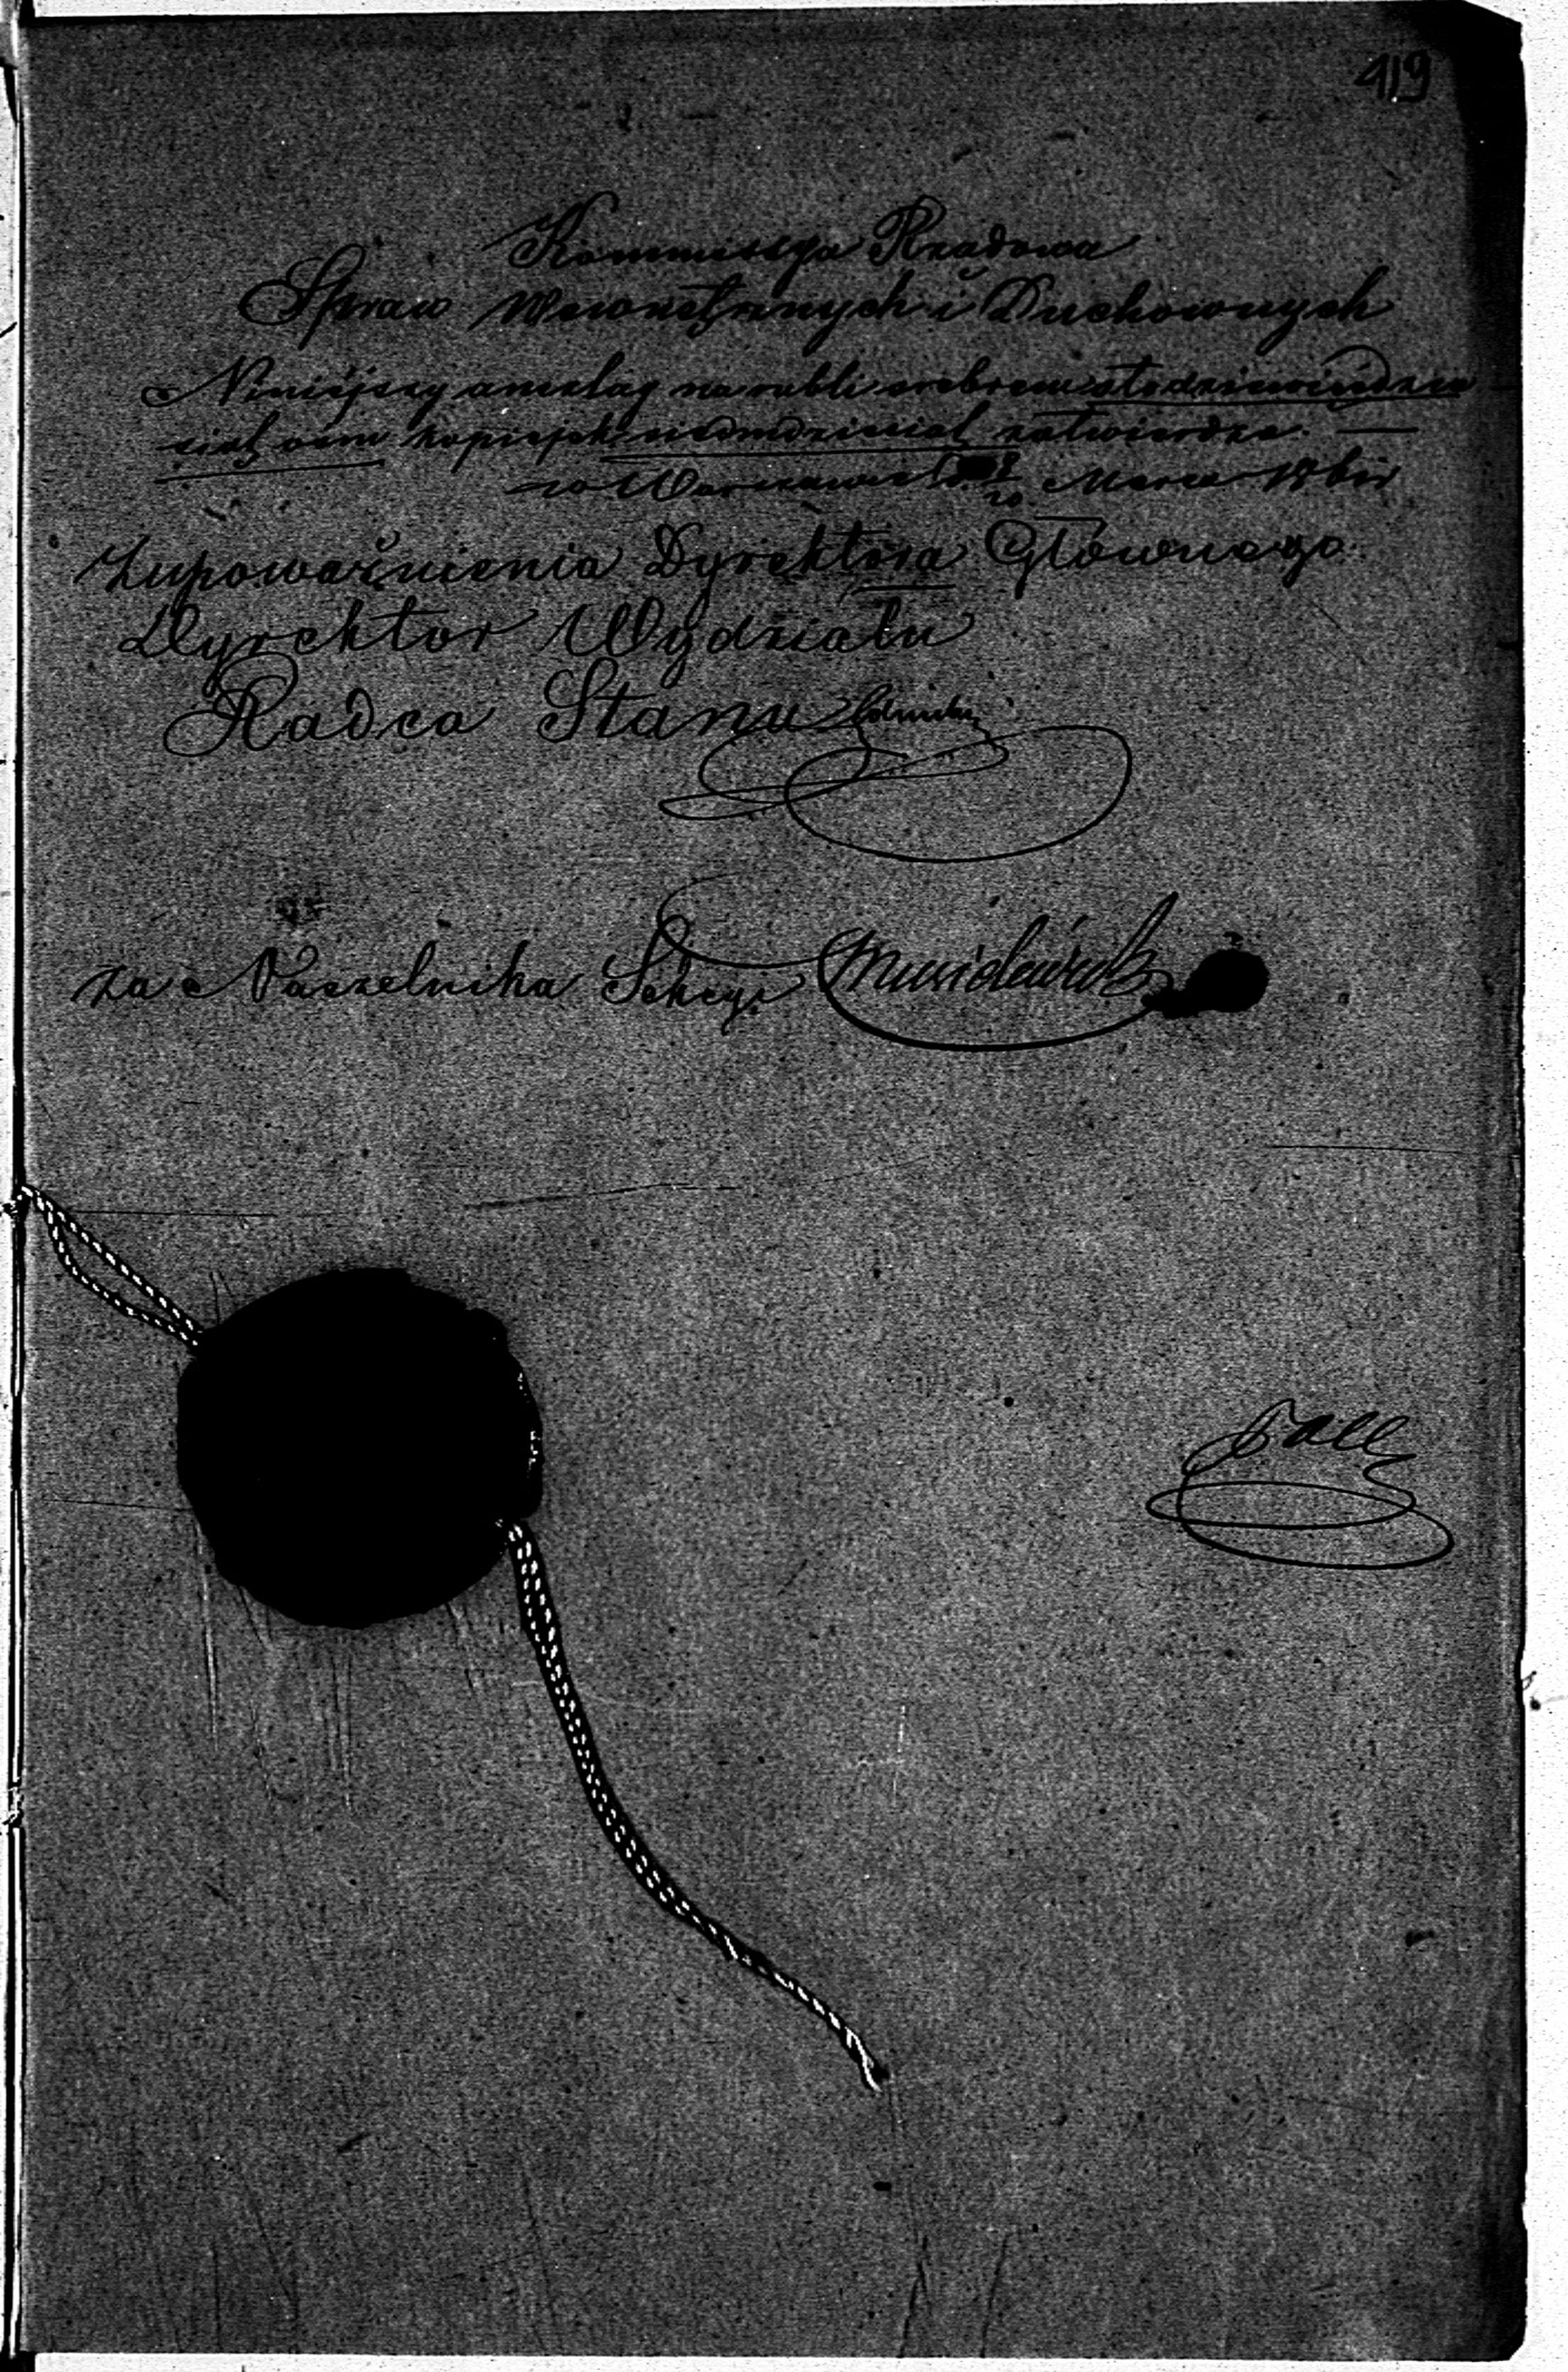 119
Kommissya Rządowa
Spraw Wewnętrznych i Duchownych
Niniejszy anszlag na rubli srebrem stodziewiędzie-
siąt osm kopiejek siedmdziesiąt zatwierdza. —
w Warszawie d. Marca
Z upoważnienia Dyrektora Głównego
Dyrektor Wydziału
Radca Stanu
za Naczelnika Sekcyi